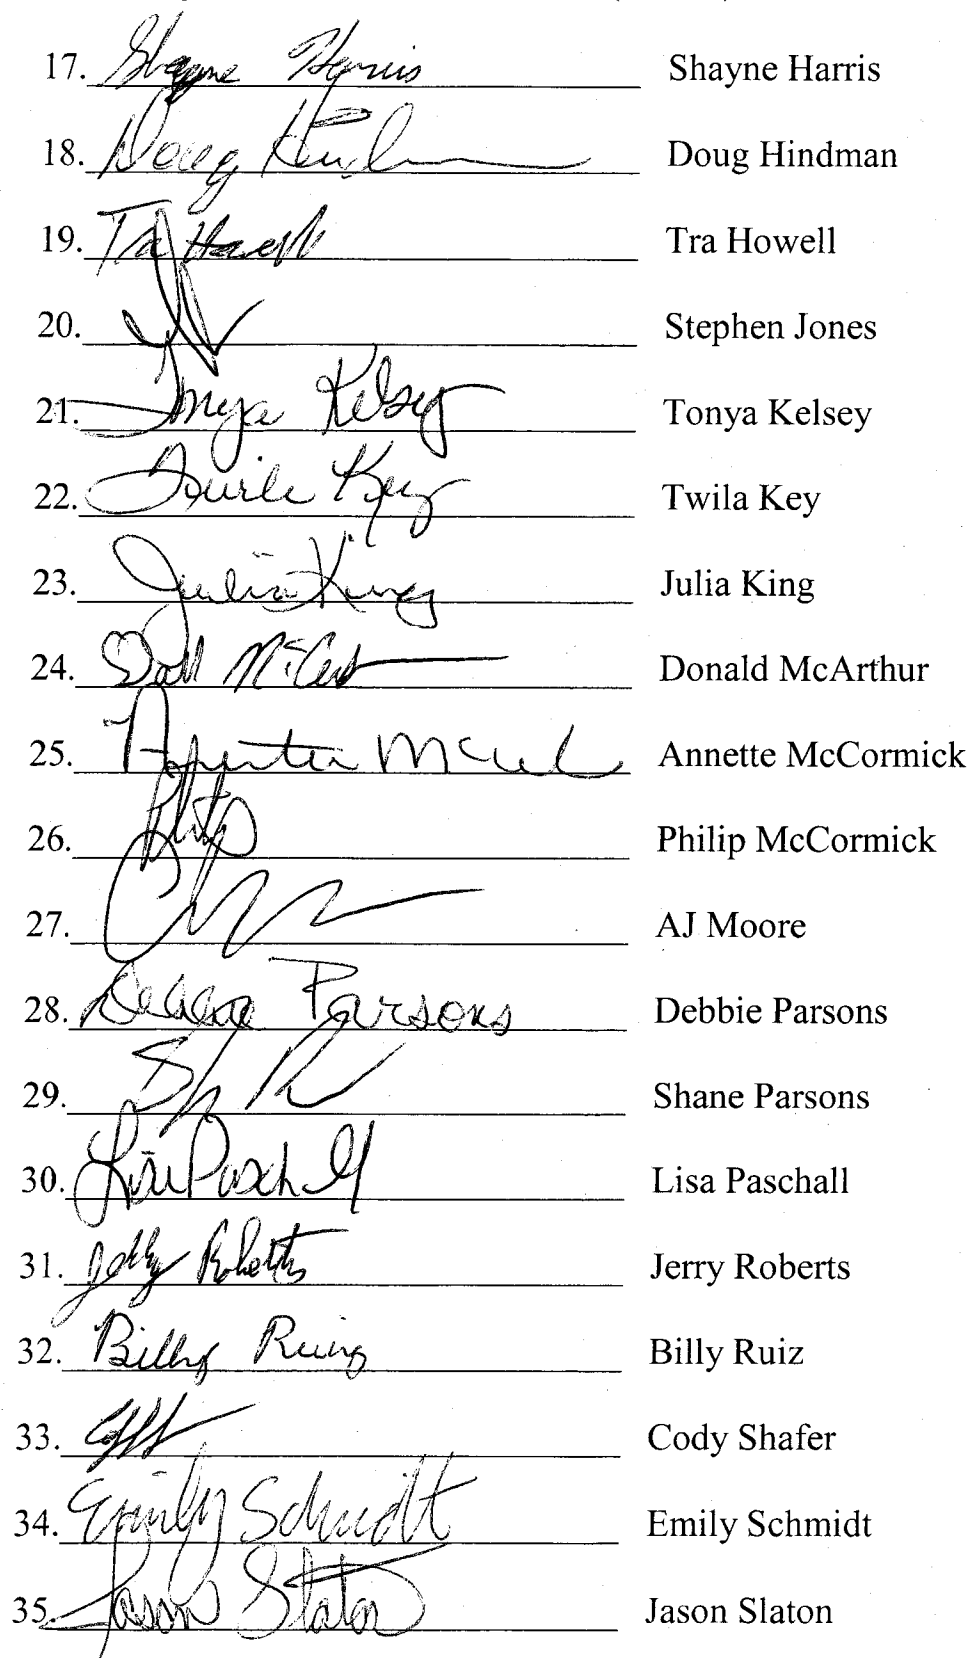 17. Shayne Harris Shayne Harris
18. Doug Hindman
19. Tra Howell Tra Howell
20. Stephen Jones
21. Tonya Kelsey Tonya Kelsey
22. Twila Key Twila Key
23. Julia King Julia King
24. Donald McArthur
25. Annette McCormick
26. Philip Philip McCormick
27. AJ Moore
28. Debbie Parsons Debbie Parsons
29. Shane Parsons
30. Lisa Paschall Lisa Paschall
31. Jerry Roberts Jerry Roberts
32. Billy Ruiz Billy Ruiz
33. Cody Shafer
34. Emily Schmidt Emily Schmidt
35. Jason Slaton Jason Slaton